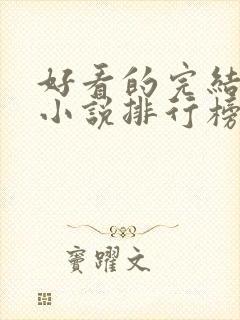 好看的完結
小說排行榜
竇躍文